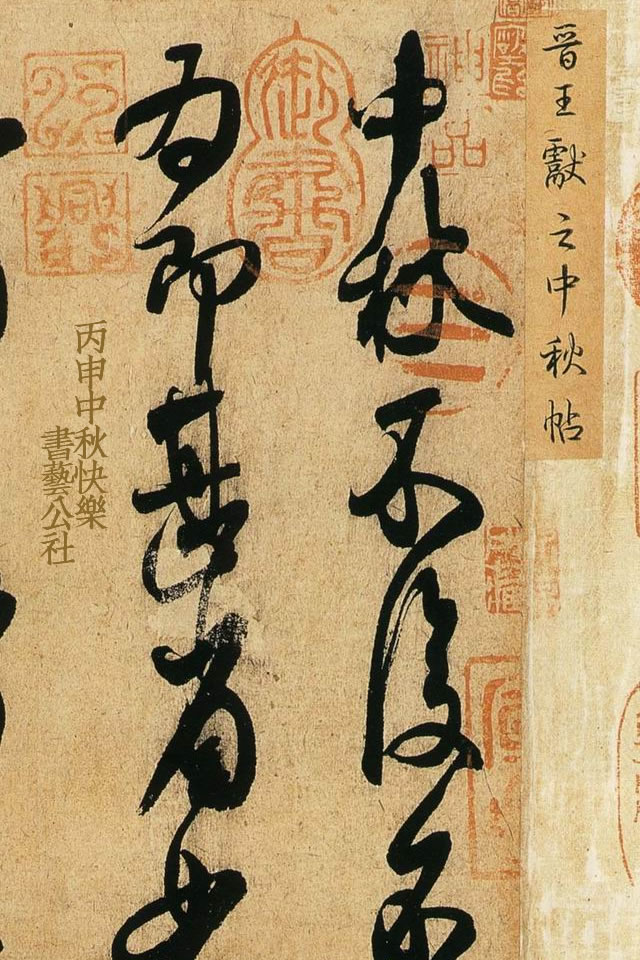 晉王獻之中秋帖
神品
中秋不復不
御書
為即甚省如
丙申中秋快樂
書藝公社